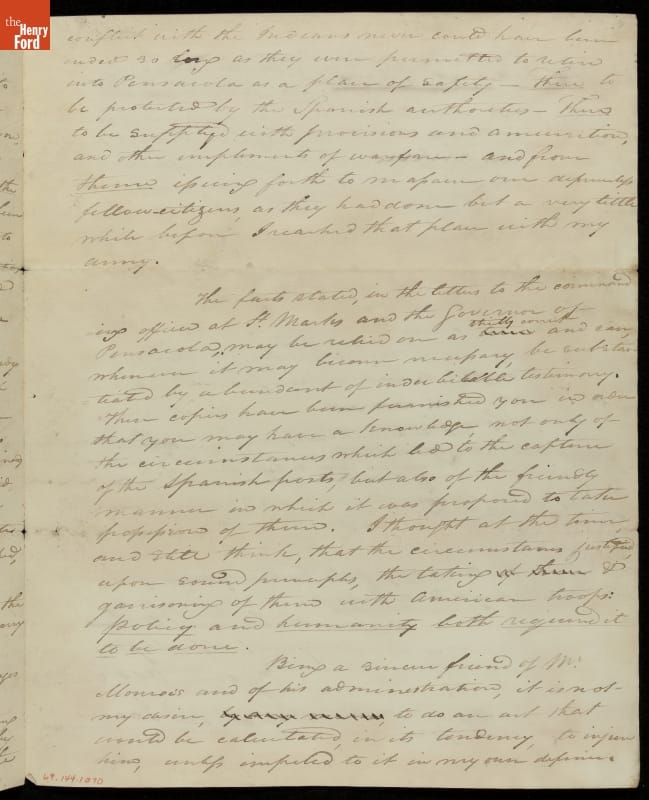 the
Henry
Ford
conflict with the Indians never could have been
ended so long as they were permitted to retire
into Pensacola as a place of safety – there to
be protected by the Spanish authorities – There
to be supplyed with provisions and amunition,
and other implements of warfare – and from
thence issuing forth to massacre our defenceless
fellow-citizens, as they had done but a very little
while before I reached that place with my
army.
The facts stated, in the letters to the command
ing officer at St. Marks and the Governor of
Pensacola, may be relied on as strictly correct and can,
whenever it may become necessary, be substan
tiated by abundant of indubitable testimony.
These copies have been furnished you in order
that you may have a knowledge, not only of
the circumstances which led to the capture
of the Spanish posts, but also of the friendly
manner in which it was proposed to take
possession of them. I thought at the time,
and still think, that the circumstances justified,
upon sound principles, the taking &
garrisoning of them with American troops:
Policy and humanity both required it
to be done.
Being a sincere friend of Mr.
Monroes and of his administration, it is not
my desire, to do an act that
would be calculated, in its tendency, to injure
him, unless impelled to it in my own defence.
69.144.1070